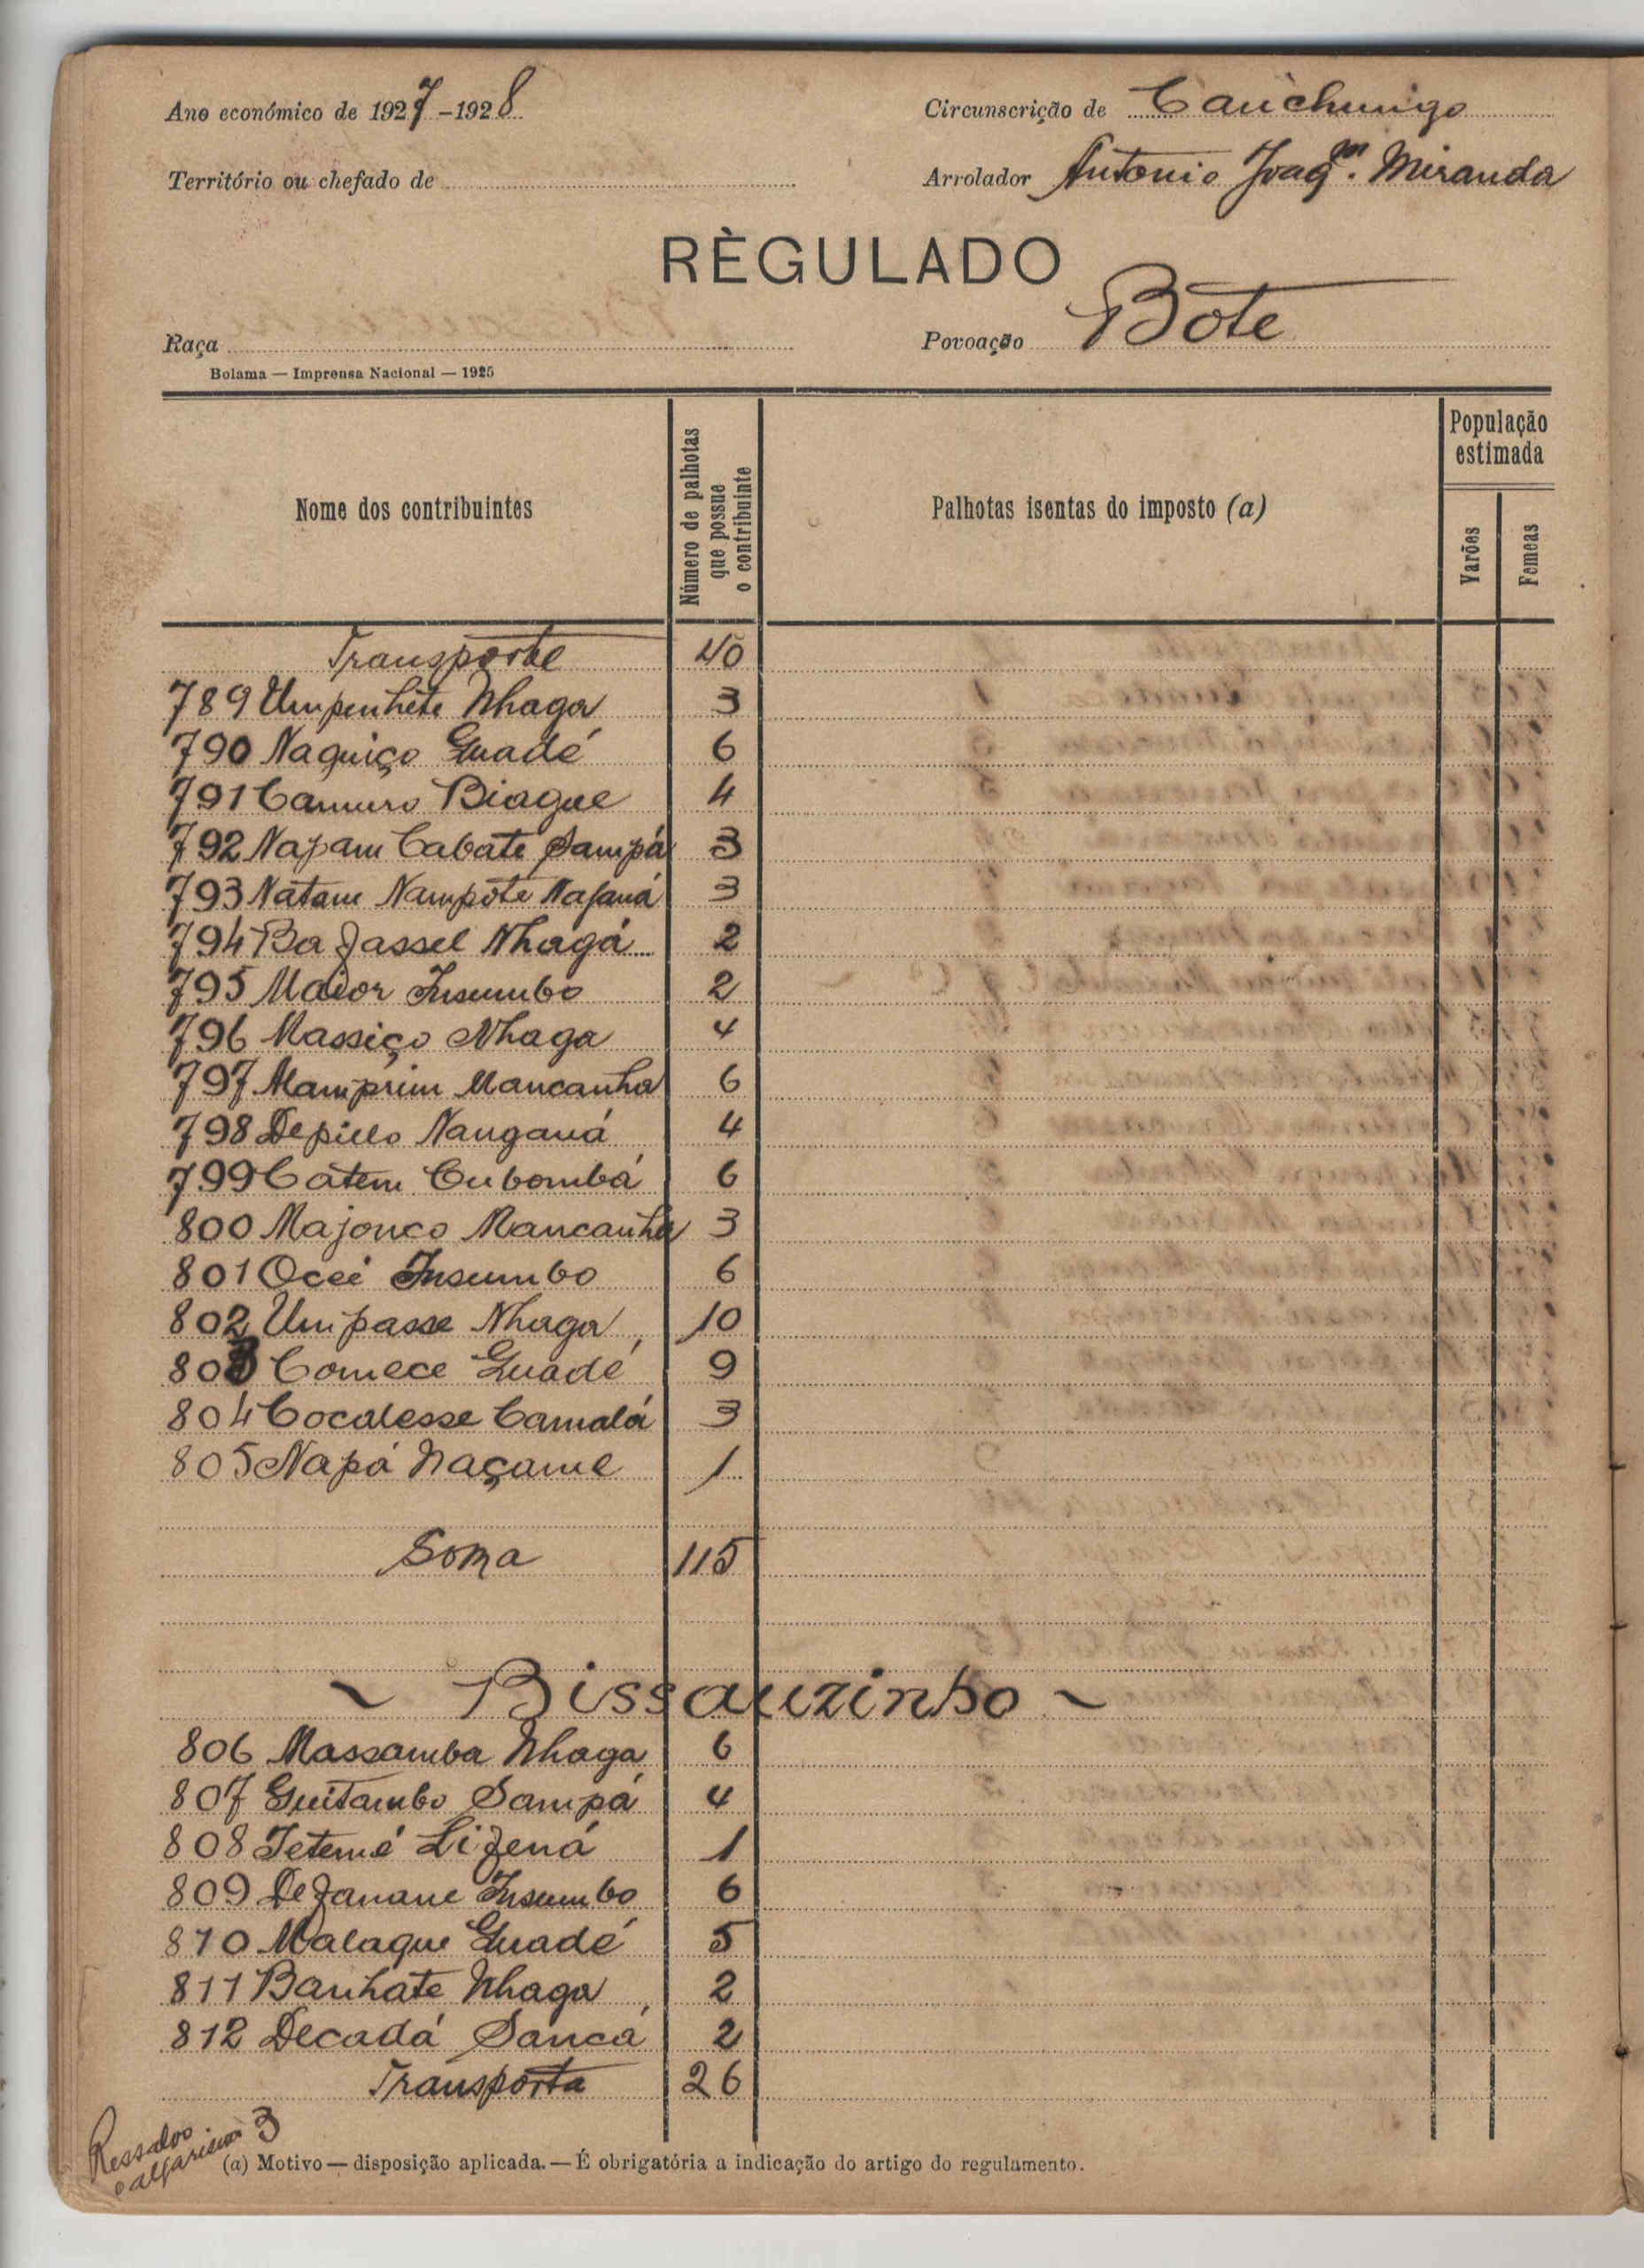 Ano económico de 1927-1928
Circunscrição de Canchungo
Território ou chefado de
Arrolador Antonio Joaqm. Miranda
RÈGULADO
Raça
Povoação Bote
Bolama — Imprensa Nacional — 1925
Nome dos contribuintes
Número de palhotas que possue o contribuinte
Palhotas isentas do imposto (a)
População estimada
Varões
Femeas
Transporte 40
789 Umpenhéte Nhaga 3
790 Naquiço Guadé 6
791 Camuro Biague 4
792 Napam Cabate Sampá 3
793 Natam Nampote Nafaná 3
794 Ba Jassel Nhagá 2
795 Maior Insumbo 2
796 Massiço Nhaga 4
797 Mamprim Mancanha 6
798 Depillo Nanganá 4
799 Catem Cubombá 6
800 Majonco Mancanha 3
801 Ocei Insumbo 6
802 Umpasse Nhaga 10
803 Comece Guadé 9
804 Cocalesse Camalá 3
805 Napá Naçame 1
Soma 115
~ Bissauzinho ~
806 Massamba Nhaga 6
807 Guitambo Sampá 4
808 Tetemé Lizená 1
809 Dejanane Insumbo 6
810 Malaque Guadé 5
811 Banhate Nhaga 2
812 Decadá Sancá 2
Transporta 26
Ressalvo
o algarismo 3
(a) Motivo — disposição aplicada. — É obrigatória a indicação do artigo do regulamento.